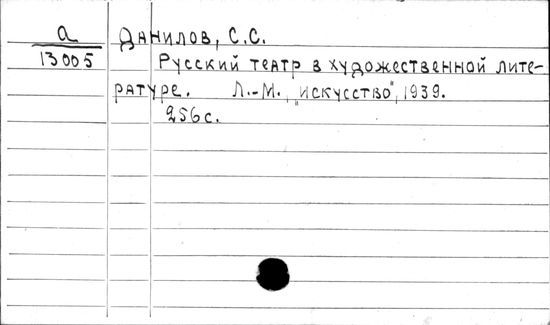 а
13005
Данилов, С.С.
Русский театр в художественной лите-
ратуре. Л.-М., "искусство", 1939.
256с.